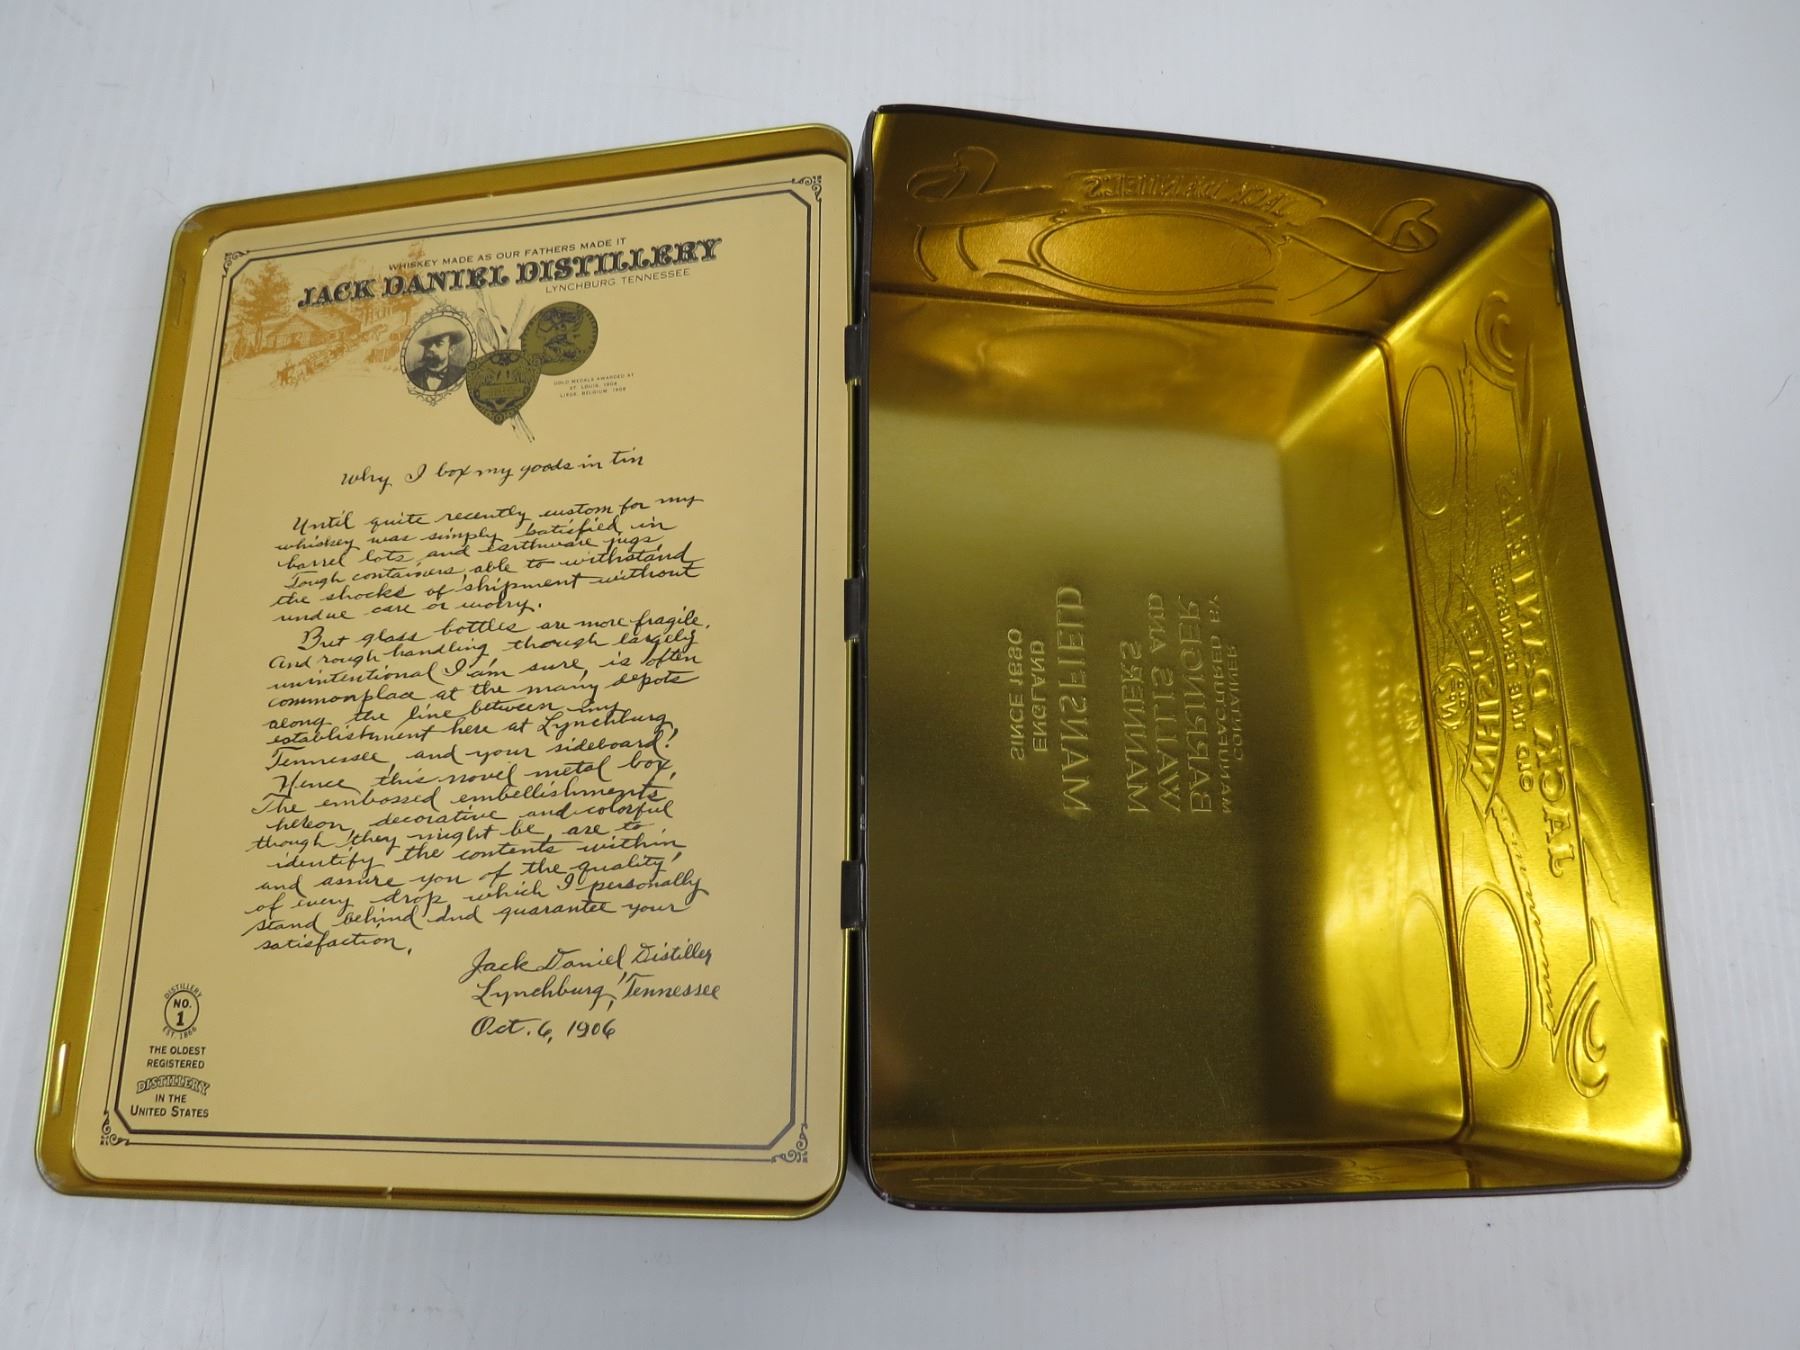 WHISKEY MADE AS OUR FATHERS MADE IT
JACK DANIEL DISTILLERY
LYNCHBURG TENNESSEE
GOLD MEDALS AWARDED AT
ST. LOUIS, 1904
LIEGE, BELGIUM 1905
Why I box my goods in tin
Until quite recently custom for my
whiskey was simply satisfied in
barrel lots and earthware jugs,
Tough containers able to withstand
the shocks of shipment without
undue care or worry.
But glass bottles are more fragile.
And rough handling though largely
unintentional I am sure, is often
commonplace at the many depots
along the line between my
establishment here at Lynchburg
Tennessee, and your sideboard!
Hence this novel metal box,
The embossed embellishments
hereon, decorative and colorful
though they might be, are to
identify the contents within,
and assure you of the quality
of every drop, which I personally
stand behind and guarantee your
satisfaction.
Jack Daniel, Distiller
Lynchburg, Tennessee
Oct. 6, 1906
DISTILLERY
NO.
1
EST. 1866
THE OLDEST
REGISTERED
DISTILLERY
IN THE
UNITED STATES
JACK DANIEL'S
MANUFACTURED BY
CONTAINER
BARRINGER
WALLIS AND
MANNERS
MANSFIELD
ENGLAND
SINCE 1890
JACK DANIEL'S
OLD TIME
WHISKEY